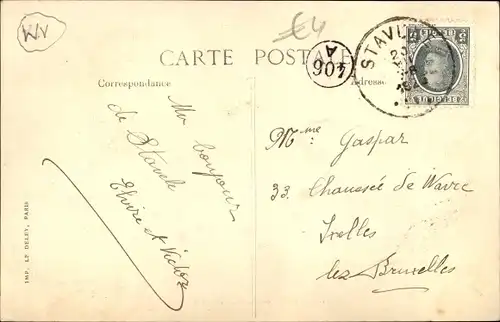 WV
£4
CARTE POSTALE
A
406
STAV
Correspondance
Adresse
Un bonjour
de Stavele
Elvire et Victor
Mme: Gaspar
33. Chaussée de Wavre
Ixelles
lez Bruxelles
IMP. LE DELEY, PARIS